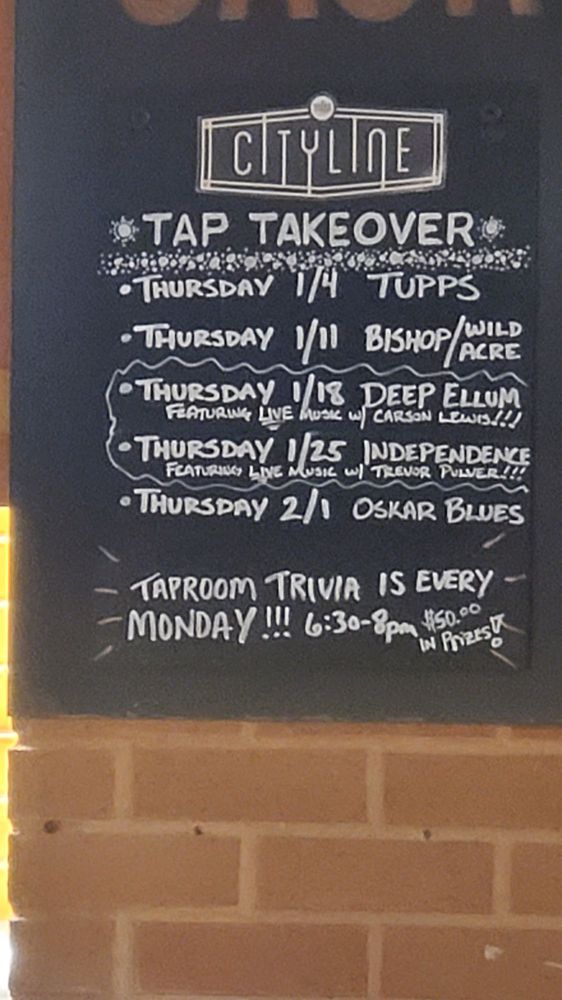 CITYLINE
TAP TAKEOVER
• THURSDAY 1/4 TUPPS
• THURSDAY 1/11 BISHOP/WILD ACRE
• THURSDAY 1/18 DEEP ELLUM
FEATURING LIVE MUSIC w/ CARSON LEWIS!!!
• THURSDAY 1/25 INDEPENDENCE
FEATURING LIVE MUSIC w/ TREVOR PULVER!!!
• THURSDAY 2/1 OSKAR BLUES
TAPROOM TRIVIA IS EVERY
MONDAY!!! 6:30-8pm $50.00
IN PRIZES!!